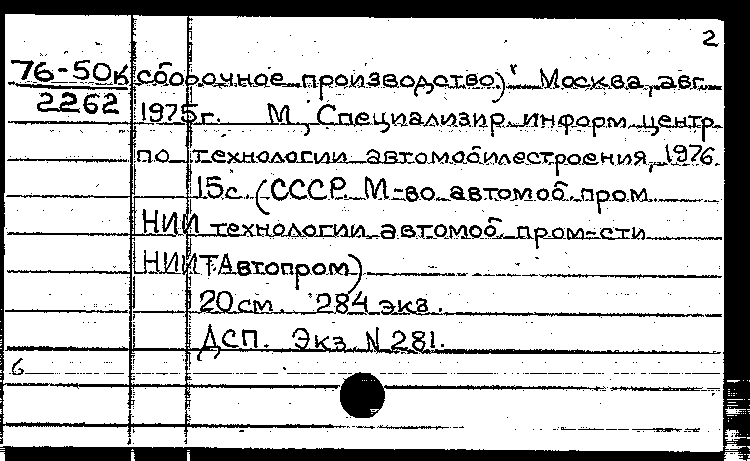 2
76-50к сборочное производство)" Москва, авг.
2262 1975г. М., Специализир. информ. центр
по технологии автомобилестроения, 1976.
15с. (СССР. М-во автомоб. пром.
НИИ технологии автомоб. пром-сти
НИИТАвтопром)
20см. 284 экз.
ДСП. Экз. N 281.
6